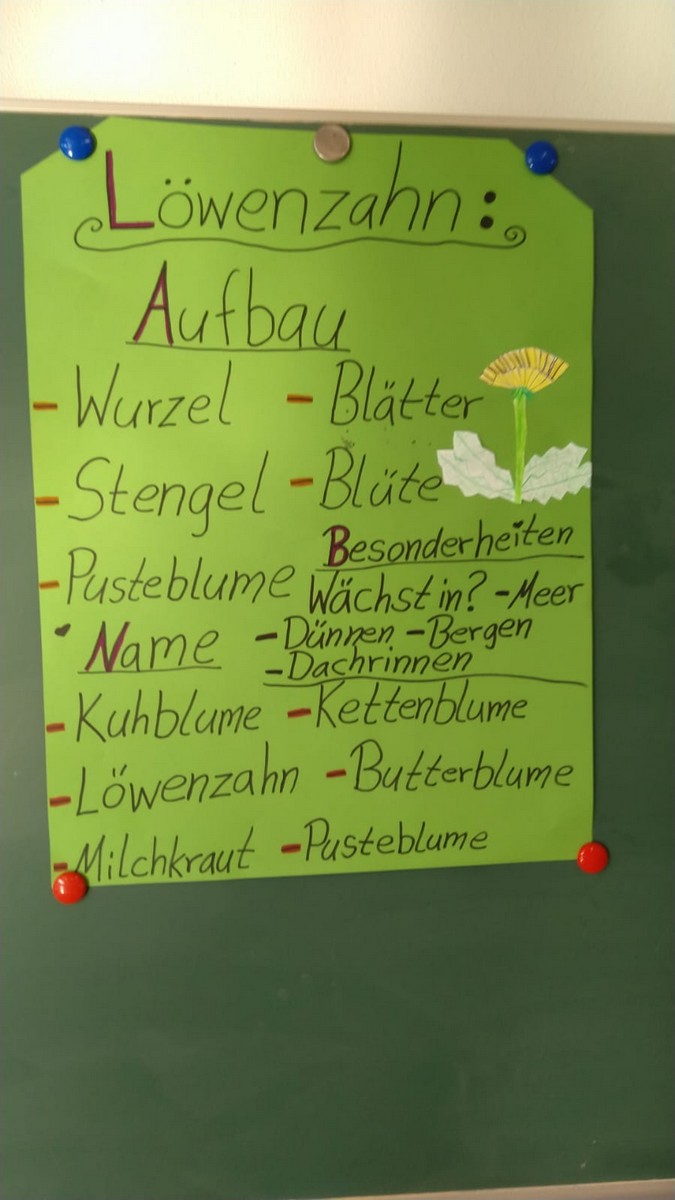 Löwenzahn:
Aufbau
- Wurzel - Blätter
- Stengel - Blüte
- Pusteblume
Besonderheiten
Wächst in? -Meer
-Dünnen -Bergen
-Dachrinnen
Name
- Kuhblume - Kettenblume
- Löwenzahn - Butterblume
- Milchkraut - Pusteblume